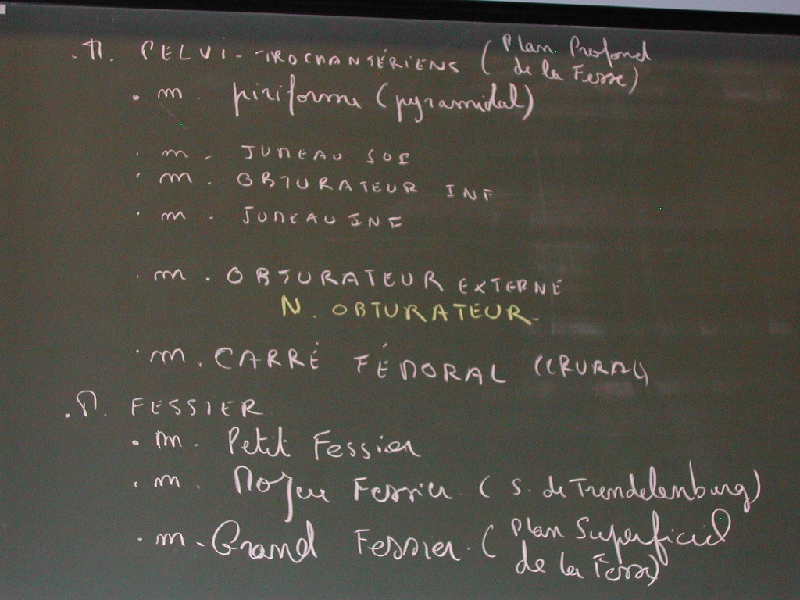 . M. PELVI-TROCHANTÉRIENS (Plan Profond
de la Fesse)
. m. piriforme (pyramidal)
. m. JUMEAU SUP
. m. OBTURATEUR INT
. m. JUMEAU INF
. m. OBTURATEUR EXTERNE
N. OBTURATEUR
. m. CARRÉ FÉMORAL (CRURAL)
. M. FESSIER
. m. Petit Fessier
. m. Moyen Fessier. (S. de Trendelenburg)
. m. Grand Fessier. (Plan Superficiel
de la Fesse)